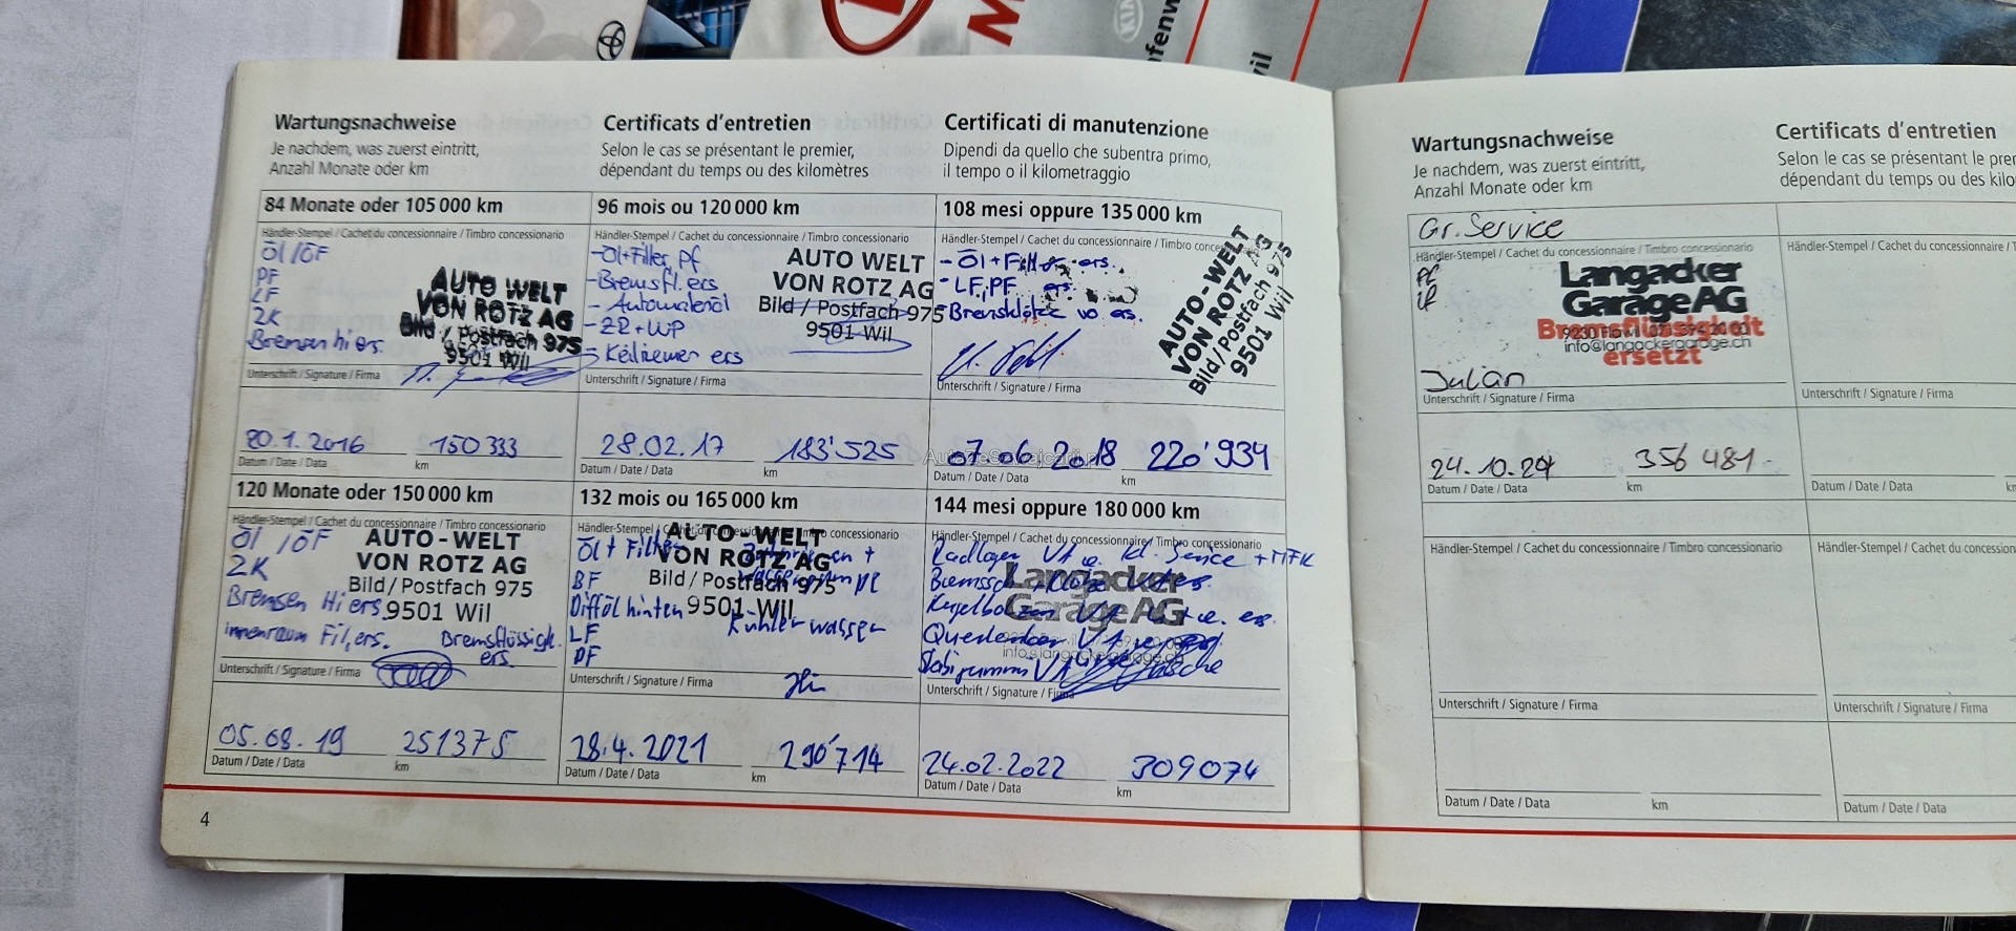 Wartungsnachweise
Je nachdem, was zuerst eintritt,
Anzahl Monate oder km
Certificats d'entretien
Selon le cas se présentant le premier,
dépendant du temps ou des kilomètres
Certificati di manutenzione
Dipendi da quello che subentra primo,
il tempo o il kilometraggio
84 Monate oder 105 000 km
Händler-Stempel / Cachet du concessionnaire / Timbro concessionario
Öl/ÖF
PF
LF
ZK
Bremsen hi ers.
AUTO WELT
VON ROTZ AG
Bild / Postfach 975
9501 Wil
Unterschrift / Signature / Firma
20.1.2016 150 333
Datum / Date / Data km
96 mois ou 120 000 km
Händler-Stempel / Cachet du concessionnaire / Timbro concessionario
-Öl+Filter, Pf
-Bremsfl. ers
- Automatenöl
-ZR+WP
- Keilriemen ers
AUTO WELT
VON ROTZ AG
Bild / Postfach 975
9501 Wil
Unterschrift / Signature / Firma
28.02.17 183'525
Datum / Date / Data km
108 mesi oppure 135 000 km
Händler-Stempel / Cachet du concessionnaire / Timbro
- Öl+Filter ers.
- LF, PF ers.
- Bremsklötze vo ers.
AUTO-WELT
VON ROTZ AG
Bild / Postfach 975
9501 Wil
Unterschrift / Signature / Firma
07.06.2018 220'934
Datum / Date / Data km
120 Monate oder 150 000 km
Händler-Stempel / Cachet du concessionnaire / Timbro concessionario
Öl/ÖF
ZK
Bremsen Hi ers
innenraum Fil, ers. Bremsflüssigk.
ers.
AUTO-WELT
VON ROTZ AG
Bild / Postfach 975
9501 Wil
Unterschrift / Signature / Firma
05.08.19 251375
Datum / Date / Data km
132 mois ou 165 000 km
Händler-Stempel / concessionario
Öl + Filter
BF
Difföl hinten
LF
PF
Kühlerwasser
AUTO-WELT
VON ROTZ AG
Bild / Postfach 975
9501 Wil
Unterschrift / Signature / Firma
28.4.2021 290'714
Datum / Date / Data km
144 mesi oppure 180 000 km
Händler-Stempel / Cachet du concessionnaire / Timbro concessionario
Radlager VA Kl. Service + MFK
Querlenker VA
Stabigummi VA
Langacker
Garage AG
Unterschrift / Signature / Firma
24.02.2022 309074
Datum / Date / Data km
4
Wartungsnachweise
Je nachdem, was zuerst eintritt,
Anzahl Monate oder km
Certificats d'entretien
Selon le cas se présentant le prem
dépendant du temps ou des kilo
Gr. Service
Händler-Stempel / Cachet du concessionnaire / Timbro concessionario
PF
Langacker
Garage AG
Bremsflüssigkeit
info@langackergarage.ch
ersetzt
Julian
Unterschrift / Signature / Firma
24.10.24 356 481
Datum / Date / Data km
Händler-Stempel / Cachet du concessionnaire
Unterschrift / Signature / Firma
Datum / Date / Data
Händler-Stempel / Cachet du concessionnaire / Timbro concessionario
Unterschrift / Signature / Firma
Datum / Date / Data km
Händler-Stempel / Cachet du concession
Unterschrift / Signature / Firma
Datum / Date / Data